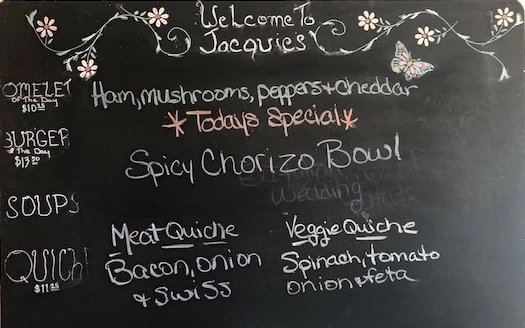 Welcome To
Jacquies
OMELET
of The Day
Ham, mushrooms, peppers + cheddar
*Todays Special*
BURGER
of The Day
Spicy Chorizo Bowl
Wedding
SOUPS
Meat Quiche
Veggie Quiche
QUICHE
Bacon, onion
& Swiss
Spinach, tomato
onion & feta